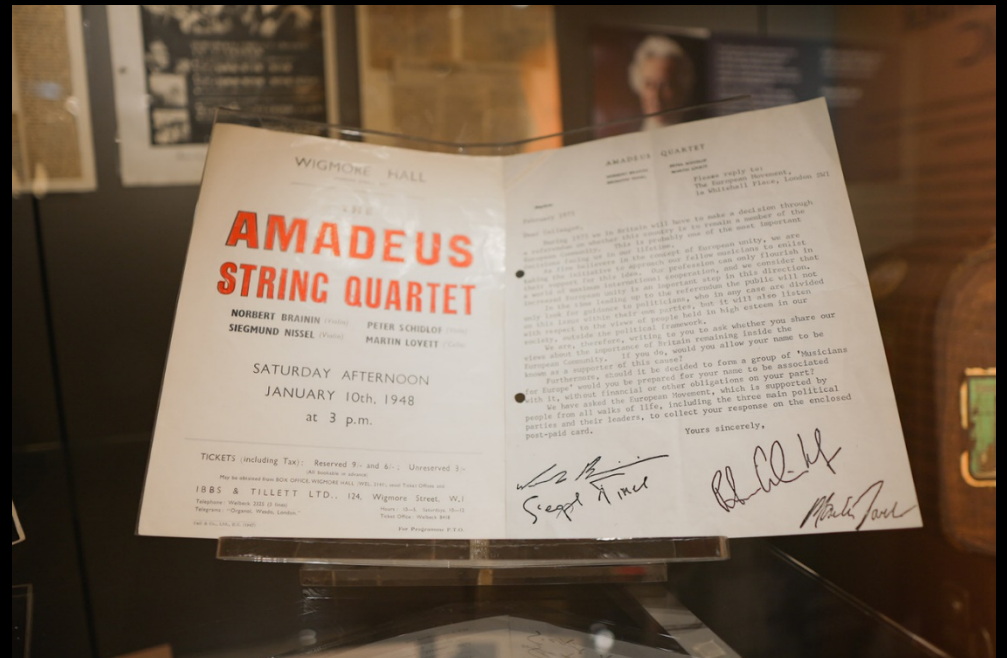 WIGMORE HALL
THE
AMADEUS
STRING QUARTET
NORBERT BRAININ (Violin) PETER SCHIDLOF (Viola)
SIEGMUND NISSEL (Violin) MARTIN LOVETT
SATURDAY AFTERNOON
JANUARY 10th, 1948
at 3 p.m.
TICKETS (including Tax): Reserved 9/- and 6/- Unreserved 3/-
(All bookable in advance)
May be obtained from BOX OFFICE, WIGMORE HALL (WEL. 2141) usual Ticket Offices and
IBBS & TILLETT LTD., 124, Wigmore Street, W.1
Telephone: Welbeck 2325 (3 lines) Hours: 10-5. Saturdays 10-12
Telegrams: "Organol, Wesdo, London." Ticket Office: Welbeck 8418
For Programme P.T.O.
AMADEUS QUARTET
NORBERT BRAININ
SIEGMUND NISSEL
PETER SCHIDLOF
MARTIN LOVETT
Please reply to:
The European Movement,
1a Whitehall Place, London SW1
February 1975
Dear Colleague,
During 1975 we in Britain will have to make a decision through
a referendum on whether this country is to remain a member of the
European Community. This is probably one of the most important
facing us in our lifetime.
As firm believers in the concept of European unity, we are
taking the initiative to approach our fellow musicians to enlist
their support for this idea. Our profession can only flourish in
a world of maximum international cooperation, and we consider that
increased European unity is an important step in this direction.
In the time leading up to the referendum the public will not
only look for guidance to politicians, who in any case are divided
on this issue within their own parties, but it will also listen
with respect to the views of people held in high esteem in our
society, outside the political framework.
We are, therefore, writing to you to ask whether you share our
views about the importance of Britain remaining inside the
European Community. If you do, would you allow your name to be
known as a supporter of this cause?
Furthermore, should it be decided to form a group of 'Musicians
for Europe' would you be prepared for your name to be associated
with it, without financial or other obligations on your part?
We have asked the European Movement, which is supported by
people from all walks of life, including the three main political
parties and their leaders, to collect your response on the enclosed
post-paid card.
Yours sincerely,